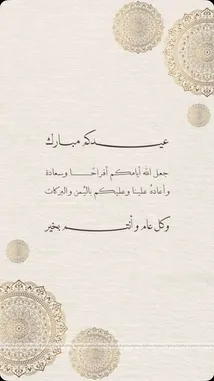 عيدكم مبارك
جعل الله أيامكم أفراحًا وسعادة
وأعاده علينا وعليكم باليُمن والبركات
وكل عام وأنتم بخير